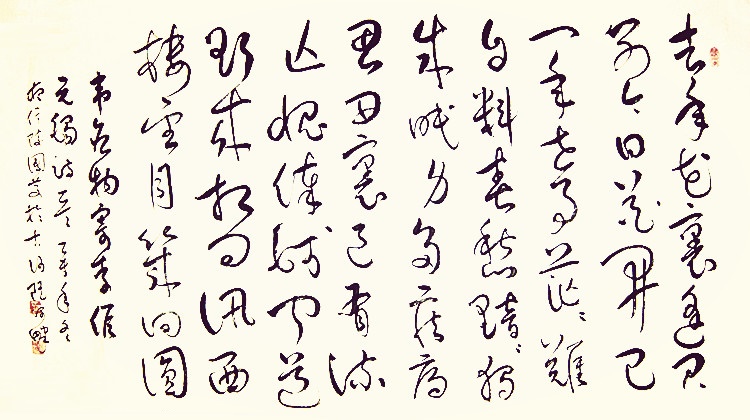 去年花裏逢君
别今日花開已
一年世事茫茫難
自料春愁黯黯獨
成眠身多疾病
思田裏邑有流
亡愧俸錢聞道
欲來相問訊西
樓望月幾回圓
韦应物寄李儋
元锡詩一首丁亥年冬